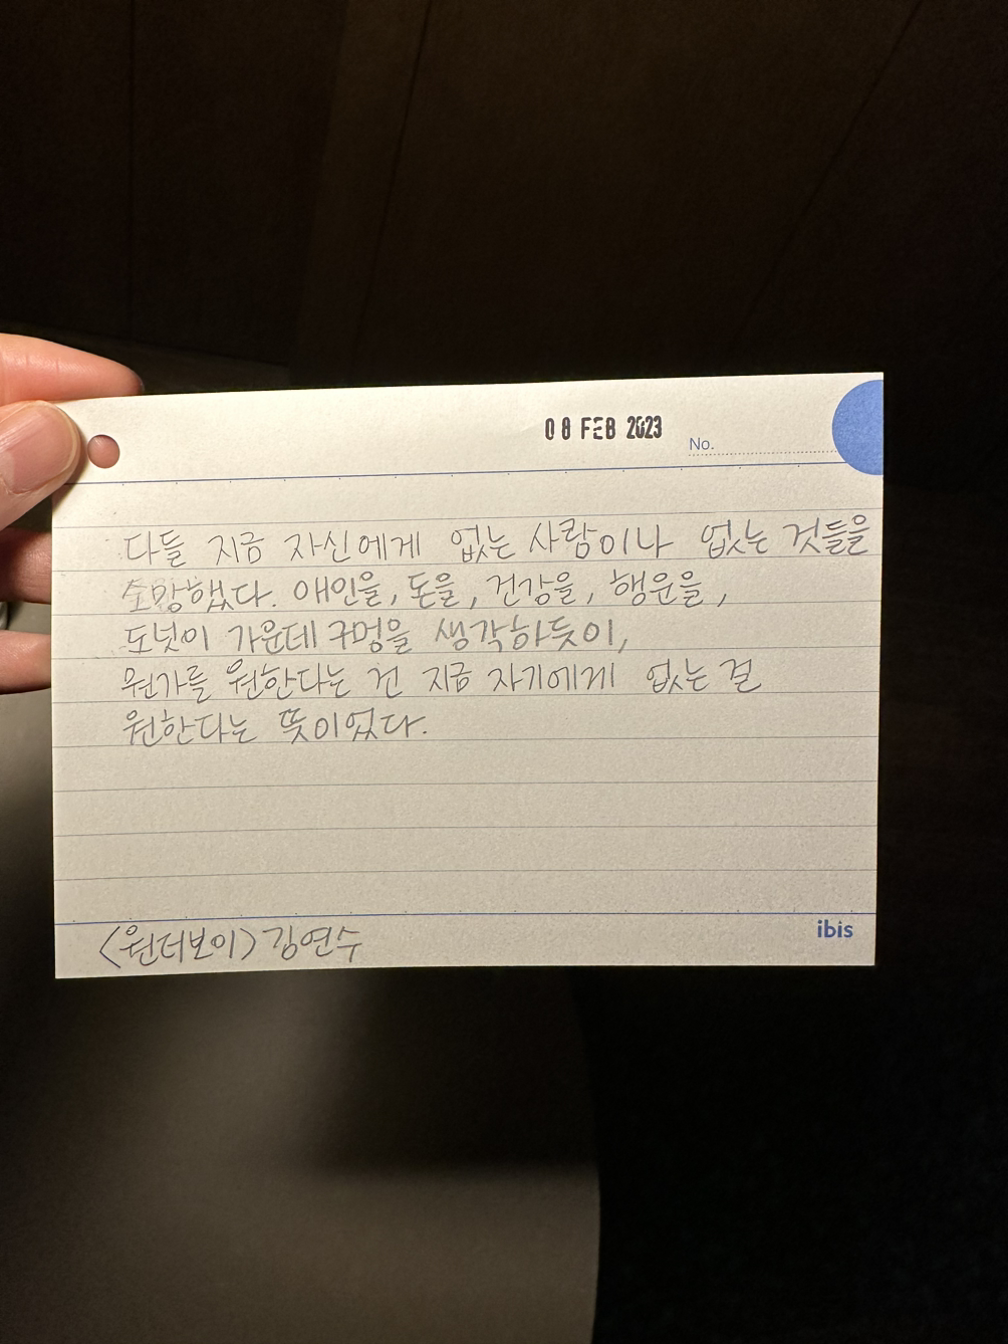 08 FEB 2023
No.
다들 지금 자신에게 없는 사람이나 없는 것들을
소망했다. 애인을, 돈을, 건강을, 행운을,
도넛이 가운데 구멍을 생각하듯이,
뭔가를 원한다는 건 지금 자기에게 없는 걸
원한다는 뜻이었다.
<원더보이> 김연수
ibis